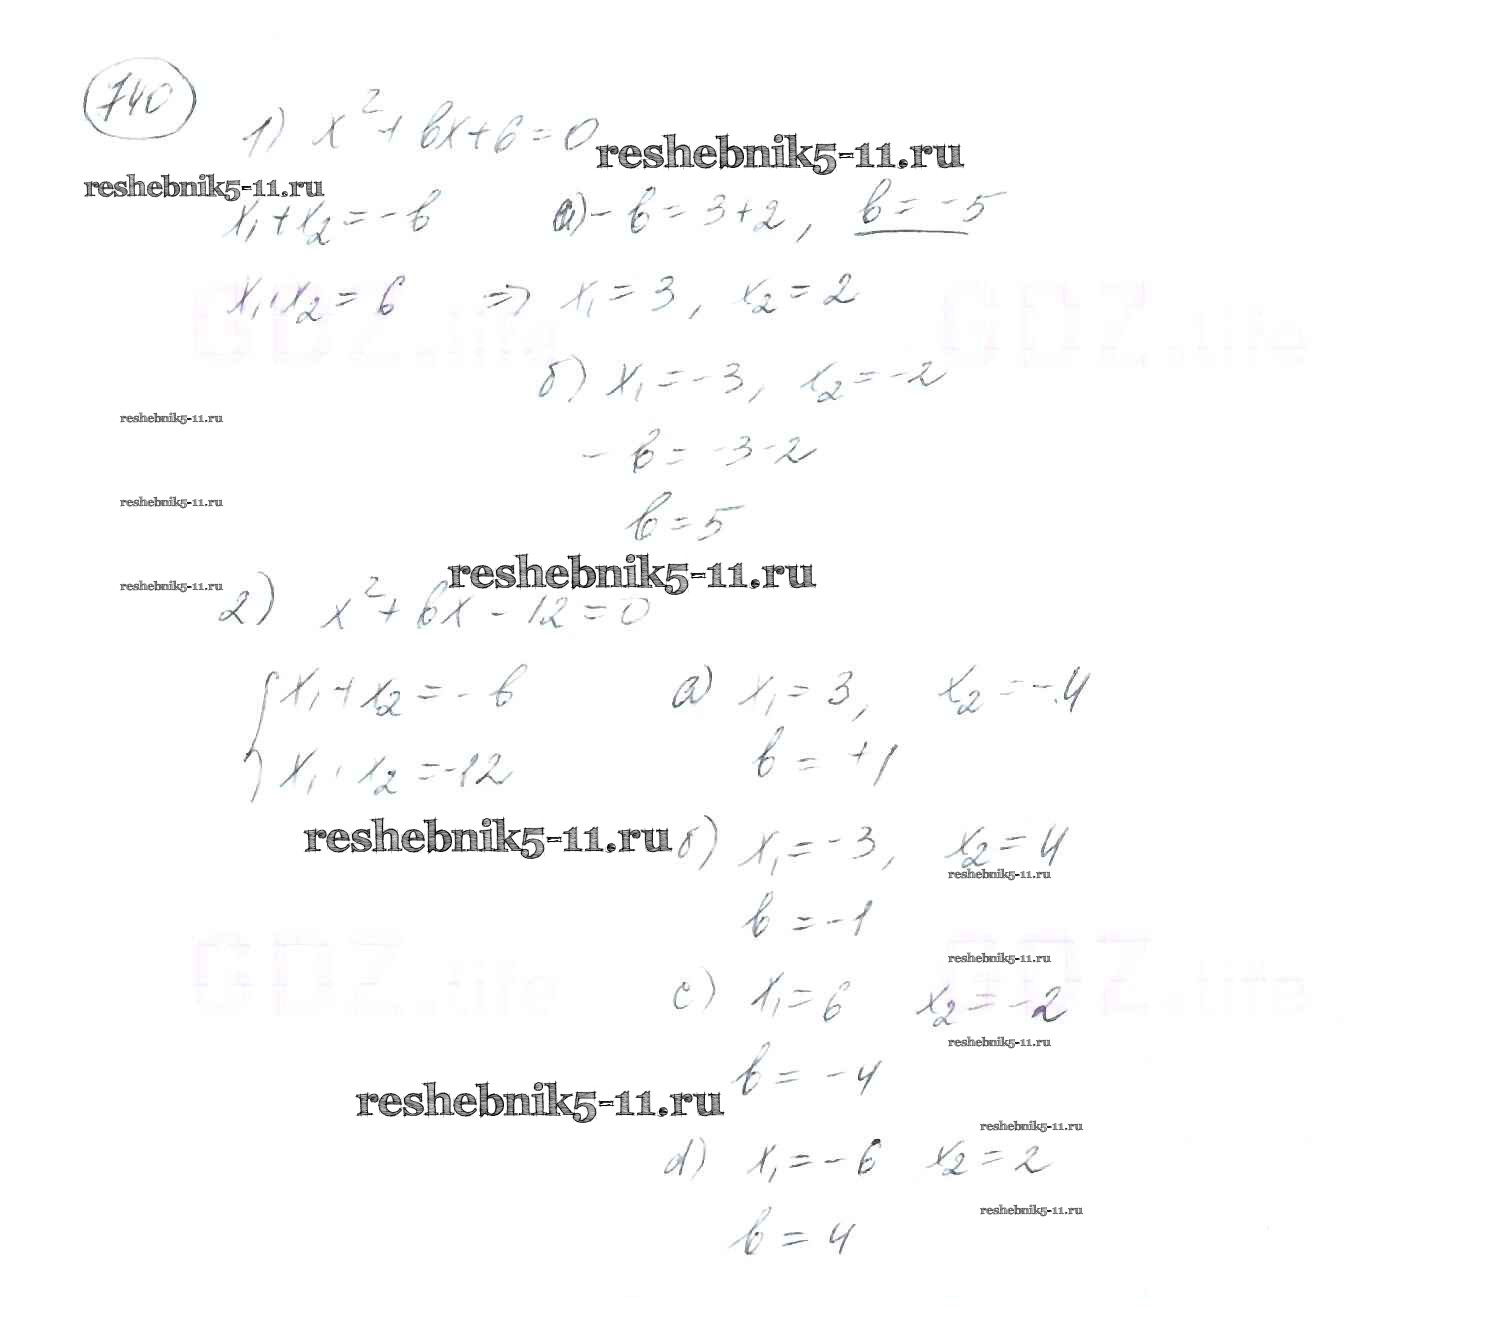 740
1) x² + bx + 6 = 0
reshebnik5-11.ru
reshebnik5-11.ru
x₁ + x₂ = -b а) - b = 3 + 2, b = -5
x₁ · x₂ = 6 => x₁ = 3, x₂ = 2
GDZ.life GDZ.life
б) x₁ = -3, x₂ = -2
reshebnik5-11.ru
- b = -3 - 2
reshebnik5-11.ru
b = 5
reshebnik5-11.ru
reshebnik5-11.ru
2) x² + bx - 12 = 0
x₁ + x₂ = - b а) x₁ = 3, x₂ = -4
x₁ · x₂ = -12 b = +1
reshebnik5-11.ru
б) x₁ = -3, x₂ = 4
reshebnik5-11.ru
b = -1
GDZ.life GDZ.life
reshebnik5-11.ru
c) x₁ = 6 x₂ = -2
reshebnik5-11.ru
b = -4
reshebnik5-11.ru
reshebnik5-11.ru
d) x₁ = -6 x₂ = 2
reshebnik5-11.ru
b = 4